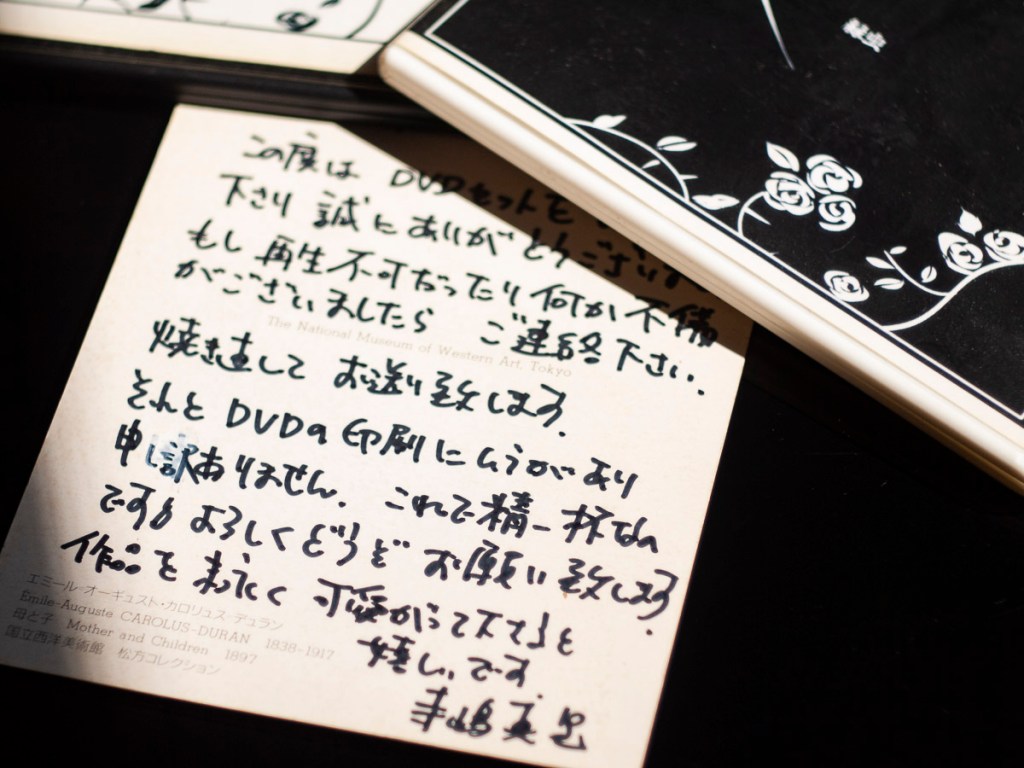 この度は DVDセットを
下さり 誠にありがとうござい
もし再生不可だったり何か不備
がございましたら ご連絡下さい.
The National Museum of Western Art, Tokyo
焼き直して お送り致します.
それと DVDの印刷にムラがあり
申し訳ありません. これで精一杯なの
です よろしくどうぞ お願い致します.
作品を 末永く 可愛がって下さると
嬉しいです.
エミール=オーギュスト・カロリュス=デュラン
Emile-Auguste CAROLUS-DURAN 1838-1917
母と子 Mother and Children 1897
国立西洋美術館 松方コレクション